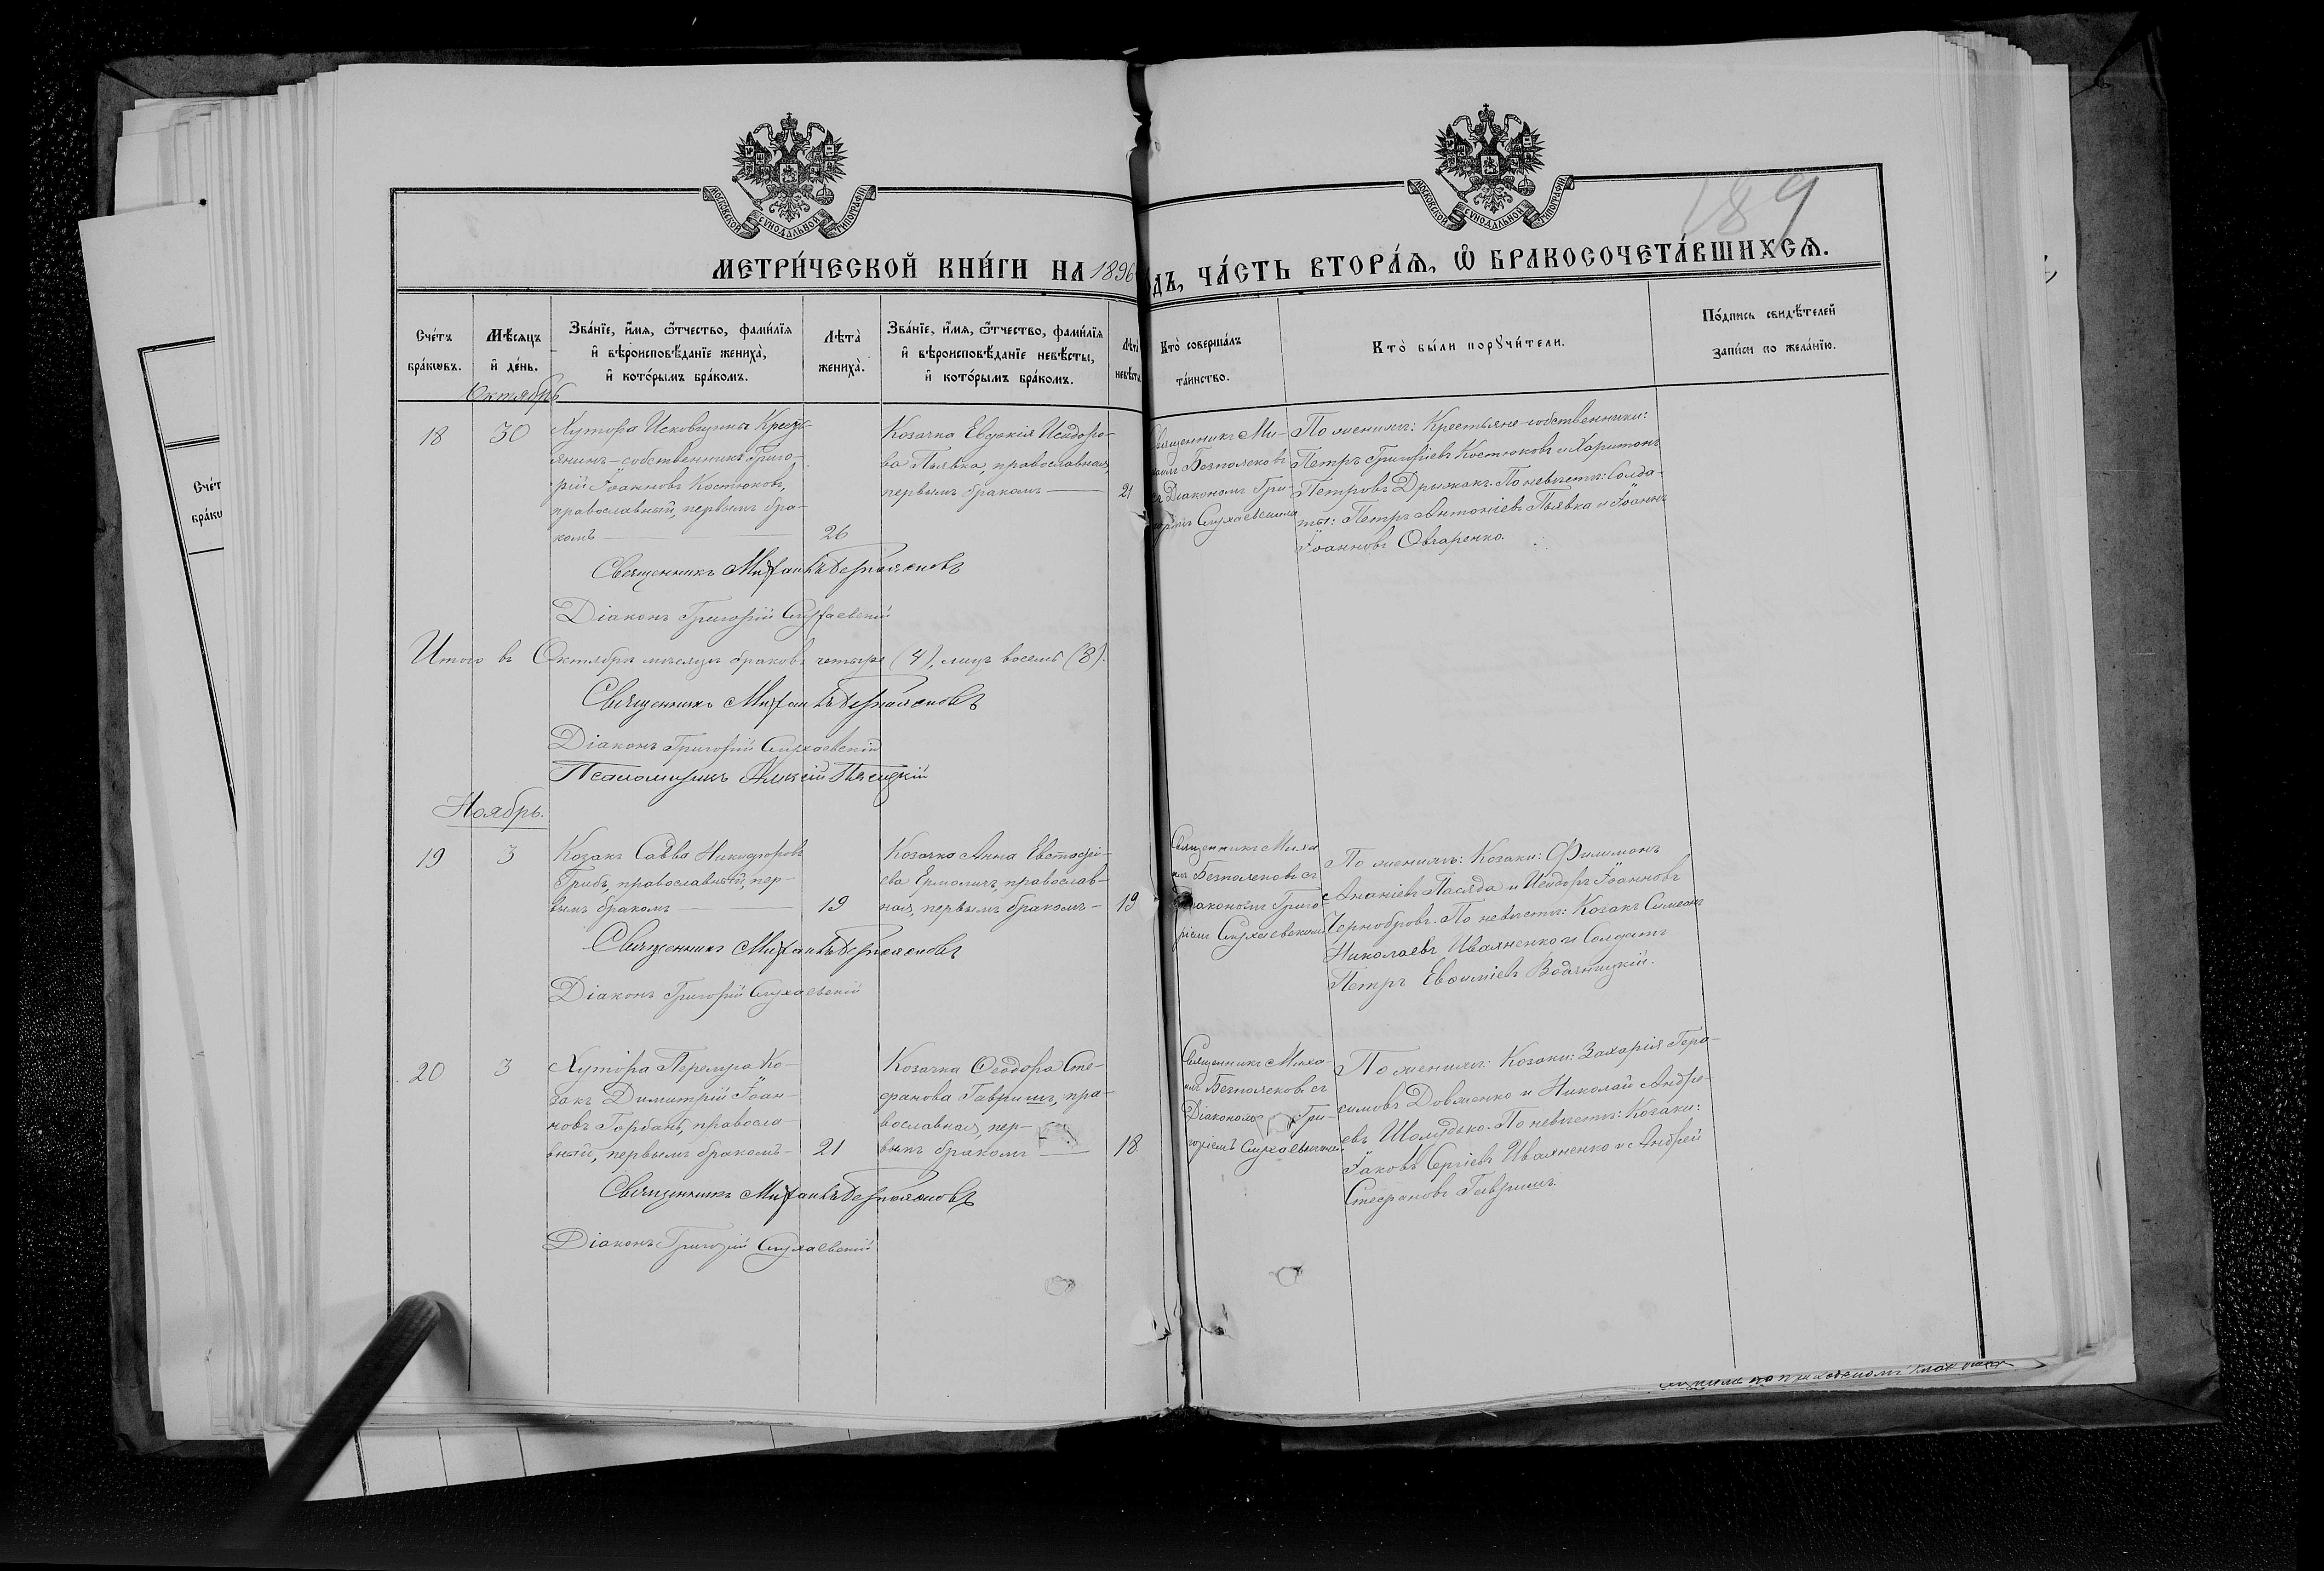 МОСКОВСКОЙ СѴНОДАЛЬНОЙ ТИПОГРАФІИ
МОСКОВСКОЙ СѴНОДАЛЬНОЙ ТИПОГРАФІИ
189
МЕТРИ́ЧЕСКОЙ КНИ́ГИ НА 1896
ДЪ, ЧА́СТЬ ВТОРА́Ѧ, Ѽ БРАКОСОЧЕТА́ВШИХСѦ.
Сче́тъ
бра́кѡвъ.
Мѣ́сѧцъ
и҆ де́нь.
Зва́нїе, и҆́мѧ, ѻ҆́тчество, фами́лїѧ
и҆ вѣроисповѣ́данїе жениха̀,
и҆ кото́рымъ бра́комъ.
Лѣта̀
жениха̀.
Зва́нїе, и҆́мѧ, ѻ҆́тчество, фами́лїѧ
и҆ вѣроисповѣ́данїе невѣ́сты,
и҆ кото́рымъ бра́комъ.
Лѣта̀
невѣ́сты
Кто̀ соверша́лъ
та́инство.
Кто̀ бы́ли порꙋчи́тели.
По́дпись свидѣ́телей
за́писи по жела́нїю.
Октябрь
18
30
Хутора Исковщины Кресть-
янинъ-собственникъ Григо-
рій Іоанновъ Костюковъ,
православный, первымъ бра-
комъ
26
Козачка Евдокія Исидоро-
ва Пьявка, православная,
первымъ бракомъ
21
Священникъ Ми-
хаилъ Безпалековъ
съ Діакономъ Гри-
горіемъ Слухаевскимъ
По женихѣ: Крестьяне-собственники:
Петръ Григоріевъ Костюковъ и Харитонъ
Петровъ Дрижакъ. По невѣстѣ: Солда-
ты: Петръ Антоніевъ Пьявка и Іоаннъ
Іоанновъ Овчаренко.
Священникъ Михаилъ Безпалековъ
Діаконъ Григорій Слухаевскій
Итого въ Октябрѣ мѣсяцѣ браковъ четыре (4), лицъ восемь (8).
Священникъ Михаилъ Безпалековъ
Діаконъ Григорій Слухаевскій
Псаломщикъ Алексій
Ноябрь.
19
3
Козакъ Савва Никифоровъ
Грибъ, православный, пер-
вымъ бракомъ
19
Козачка Анна Евстафі-
ева Ермоличъ, православ-
ная, первымъ бракомъ
19
Священникъ Миха
илъ Безпалековъ съ
Діакономъ Григо-
ріемъ Слухаевскимъ
По женихѣ: Козаки: Филимонъ
Ананіевъ Пасяда и Исидоръ Іоанновъ
Чернобровъ. По невѣстѣ: Козакъ Симеонъ
Николаевъ Иваненко и Солдатъ
Петръ Евѳиміевъ Водяницкій.
Священникъ Михаилъ Безпалековъ
Діаконъ Григорій Слухаевскій
20
3
Хутора Перемога Ко-
закъ Димитрій Іоан-
новъ Горбань, правосла-
вный, первымъ бракомъ
21
Козачка Ѳеодора Сте-
фанова Гавришъ, пра-
вославная, пер-
вымъ бракомъ
18
Священникъ Миха-
илъ Безпалековъ съ
Діакономъ Гри-
горіемъ Слухаевскимъ.
По женихѣ: Козаки: Захарія Гера-
симовъ Довженко и Николай Андре-
евъ Шолудько. По невѣстѣ: Козаки:
Іаковъ Сергіевъ Иваненко и Андрей
Стефановъ Гавришъ.
Священникъ Михаилъ Безпалековъ
Діаконъ Григорій Слухаевскій
Сче́т
бра́кѡ